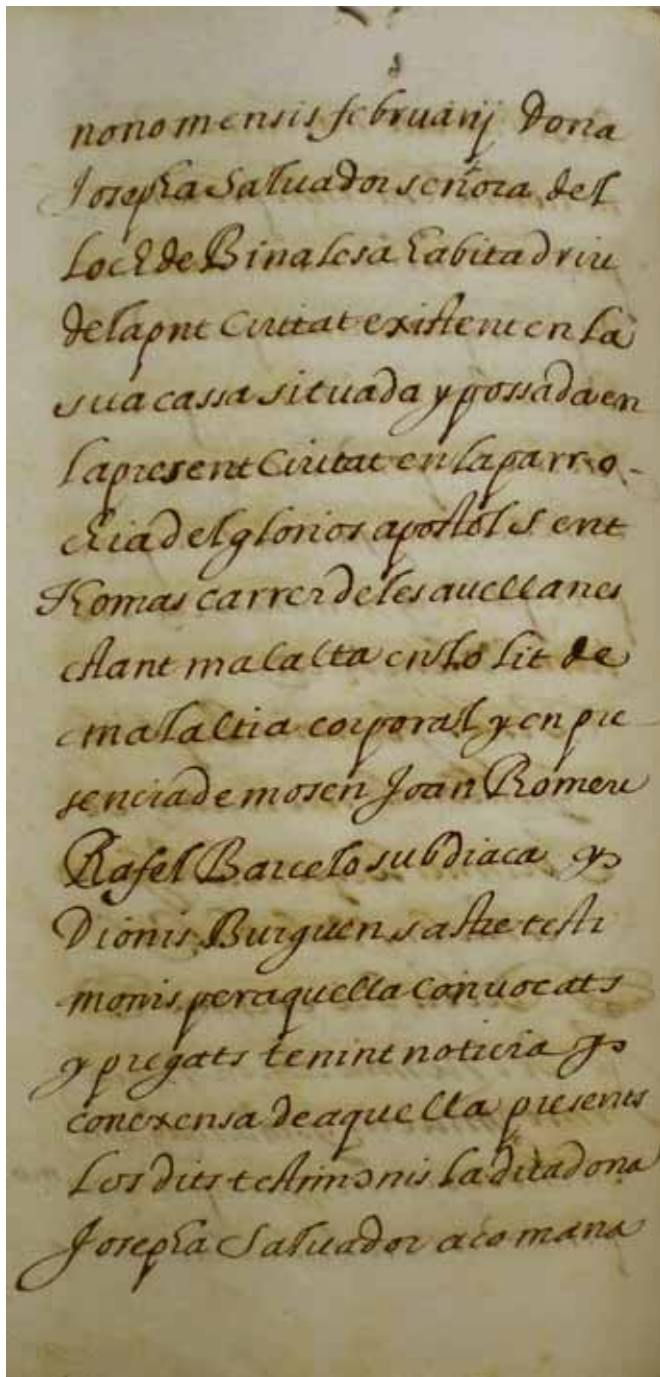 nono mensis februarij Dona
Josepha Saluador señora del
Loch de Binalesa habitadriu
de la pnt Ciutat existent en la
sua cassa situada y possada en
la present Ciutat en la parro-
chia del glorios apostol Sent
Thomas carrer de les auellanes
estant malalta en lo lit de
malaltia corporal y en pre
sencia de mosen Joan Romeu
Rafel Barcelo subdiaca y
Dionis Burguen sastre testi
monis per aquella conuocats
y pregats tenint noticia y
conexensa de aquella presents
Los dits testimonis la dita dona
Josepha Saluador acomana